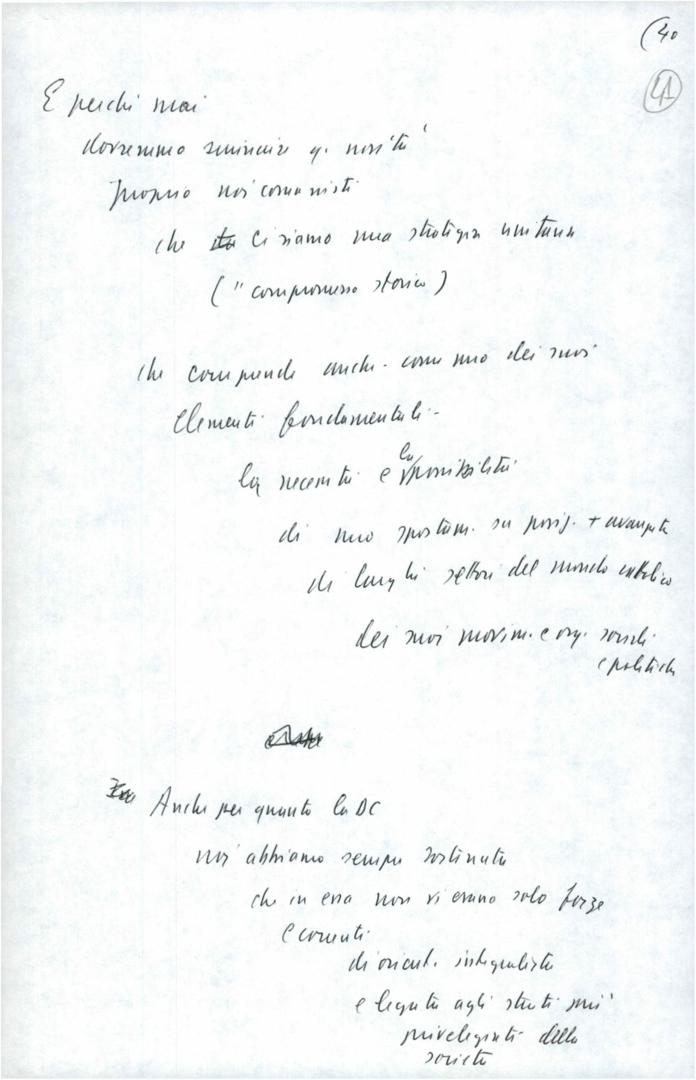 (40
41
E perché mai
dovremmo sminuire q. novità
proprio noi comunisti
che ci siamo una strategia unitaria
("compromesso storico)
che comprende anche come uno dei suoi
elementi fondamentali
la necessità e la possibilità
di uno spostam. su posiz. + avanzate
di larghi settori del mondo cattolico
dei suoi movim. e org. sociali
e politiche
Anche per quanto la DC
noi abbiamo sempre sostenuto
che in essa non vi erano solo forze
e correnti
di orient. integralista
e legate agli strati più
privelegiati della
società